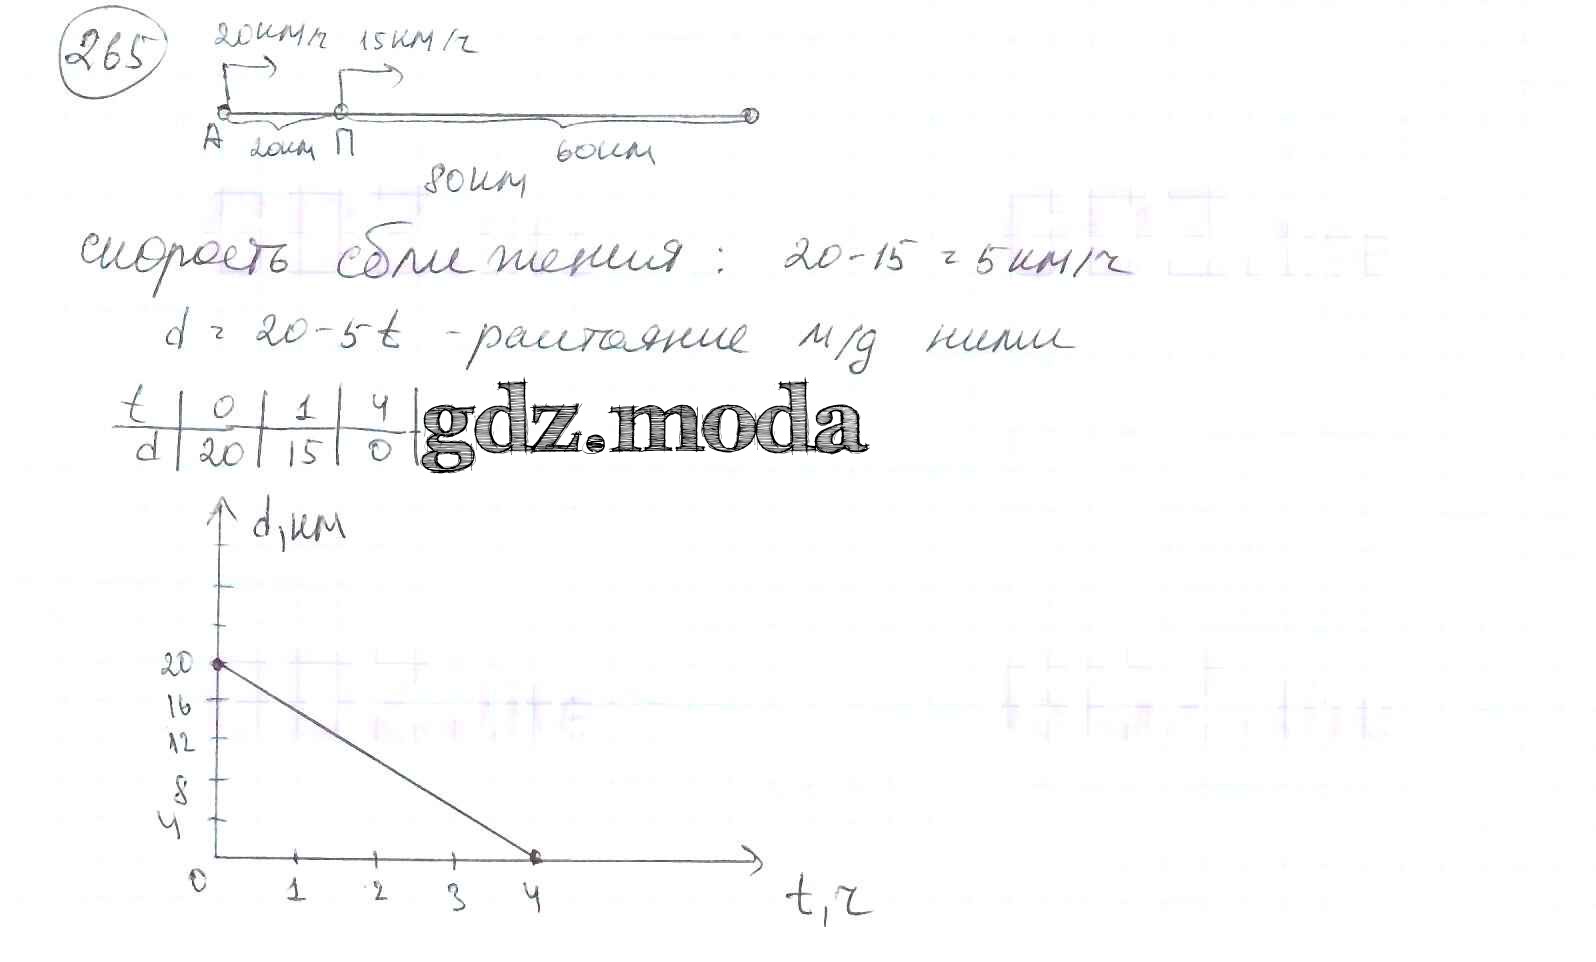 265
20км/ч 15км/ч
А 20км П 60км
80км
скорость сближения : 20-15 = 5км/ч
d = 20-5t - расстояние м/д ними
t | 0 | 1 | 4 |
d | 20 | 15 | 0 |
gdz.moda
d,км
20
16
12
8
4
0 1 2 3 4
t,ч